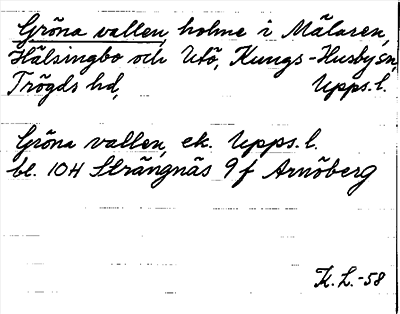 Gröna vallen, holme i Mälaren,
Hälsingbo och Utö, Kungs-Husby sn,
Trögds hd, Upps. l.
Gröna vallen, ek. Upps. l.
bl. 104 Strängnäs 9f Arnöberg
K. L. -58